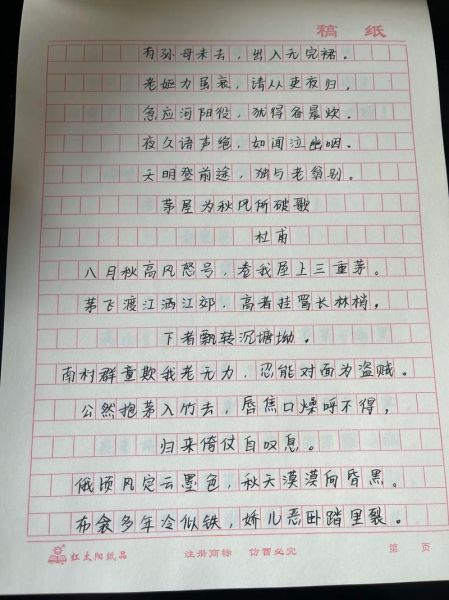 稿 纸
有孙母未去，出入无完裙。
老妪力虽衰，请从吏夜归，
急应河阳役，犹得备晨炊。
夜久语声绝，如闻泣幽咽。
天明登前途，独与老翁别。
茅屋为秋风所破歌
杜甫
八月秋高风怒号，卷我屋上三重茅。
茅飞渡江洒江郊，高者挂罥长林梢，
下者飘转沉塘坳。
南村群童欺我老无力，忍能对面为盗贼。
公然抱茅入竹去，唇焦口燥呼不得，
归来倚仗自叹息。
俄顷风定云墨色，秋天漠漠向昏黑。
布衾多年冷似铁，娇儿恶卧踏里裂。
红太阳纸品 注册商标 仿冒必究 第 页